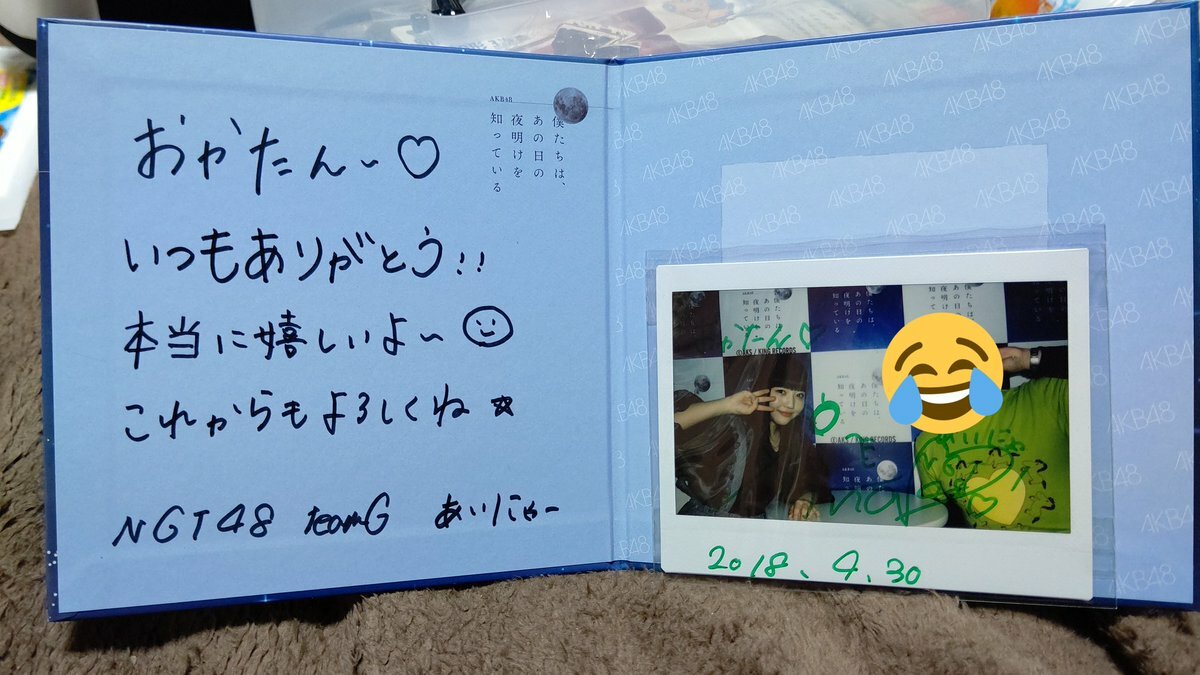 おかたん～♡
いつもありがとう!!
本当に嬉しいよ～
これからもよろしくね☆
NGT48 teamG あいにゃー
AKB48
僕たちは、
あの日の
夜明けを
知っている
AKB48
AKB48
AKB48
AKB48
AKB48
AKB48
AKB48
AKB48
AKB48
僕たちは、
あの日の
夜明けを
知っている
かたん♡
©AKS / KING RECORDS
©AKS / KING RECORDS
2018.4.30